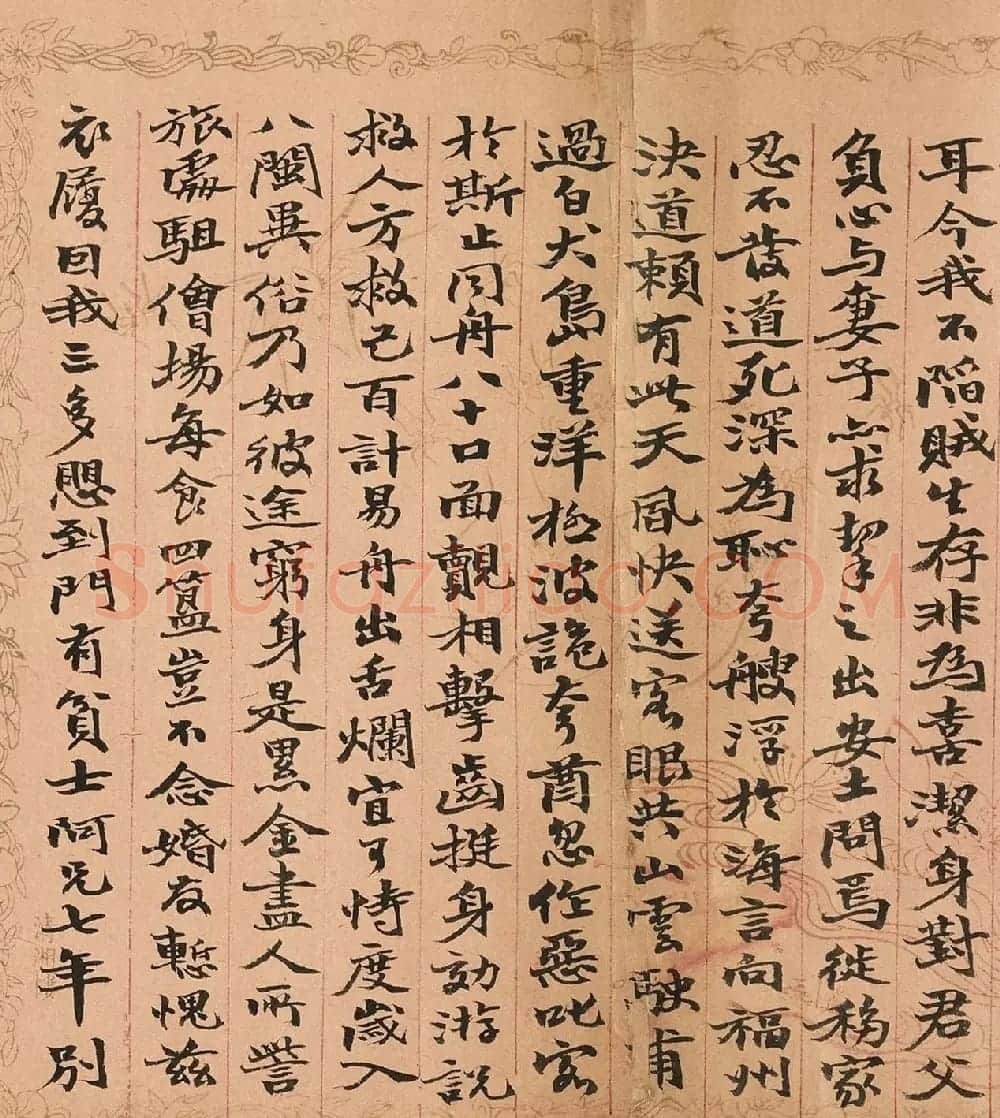 耳今我不陷賊生存非為喜潔身對君父
負心与妻子亦求挈之出安土問焉徙移家
忍不發道死深為恥夸艘浮於海言向福州
決道賴有此天風快送客眼共山雲駛甫
過白犬島重洋極波詭夸酋忽作惡叱客
於斯止同舟八十口面覿相擊齒挺身効游說
救人方救己百計易舟出舌爛宜可恃度歲入
八閩異俗乃如彼途窮身是累金盡人所訾
旅處駔儈場每食四簋豈不念婚友慙愧茲
衣履回我三多愍到門有貧士阿兄七年別
Shufaziliao.COM